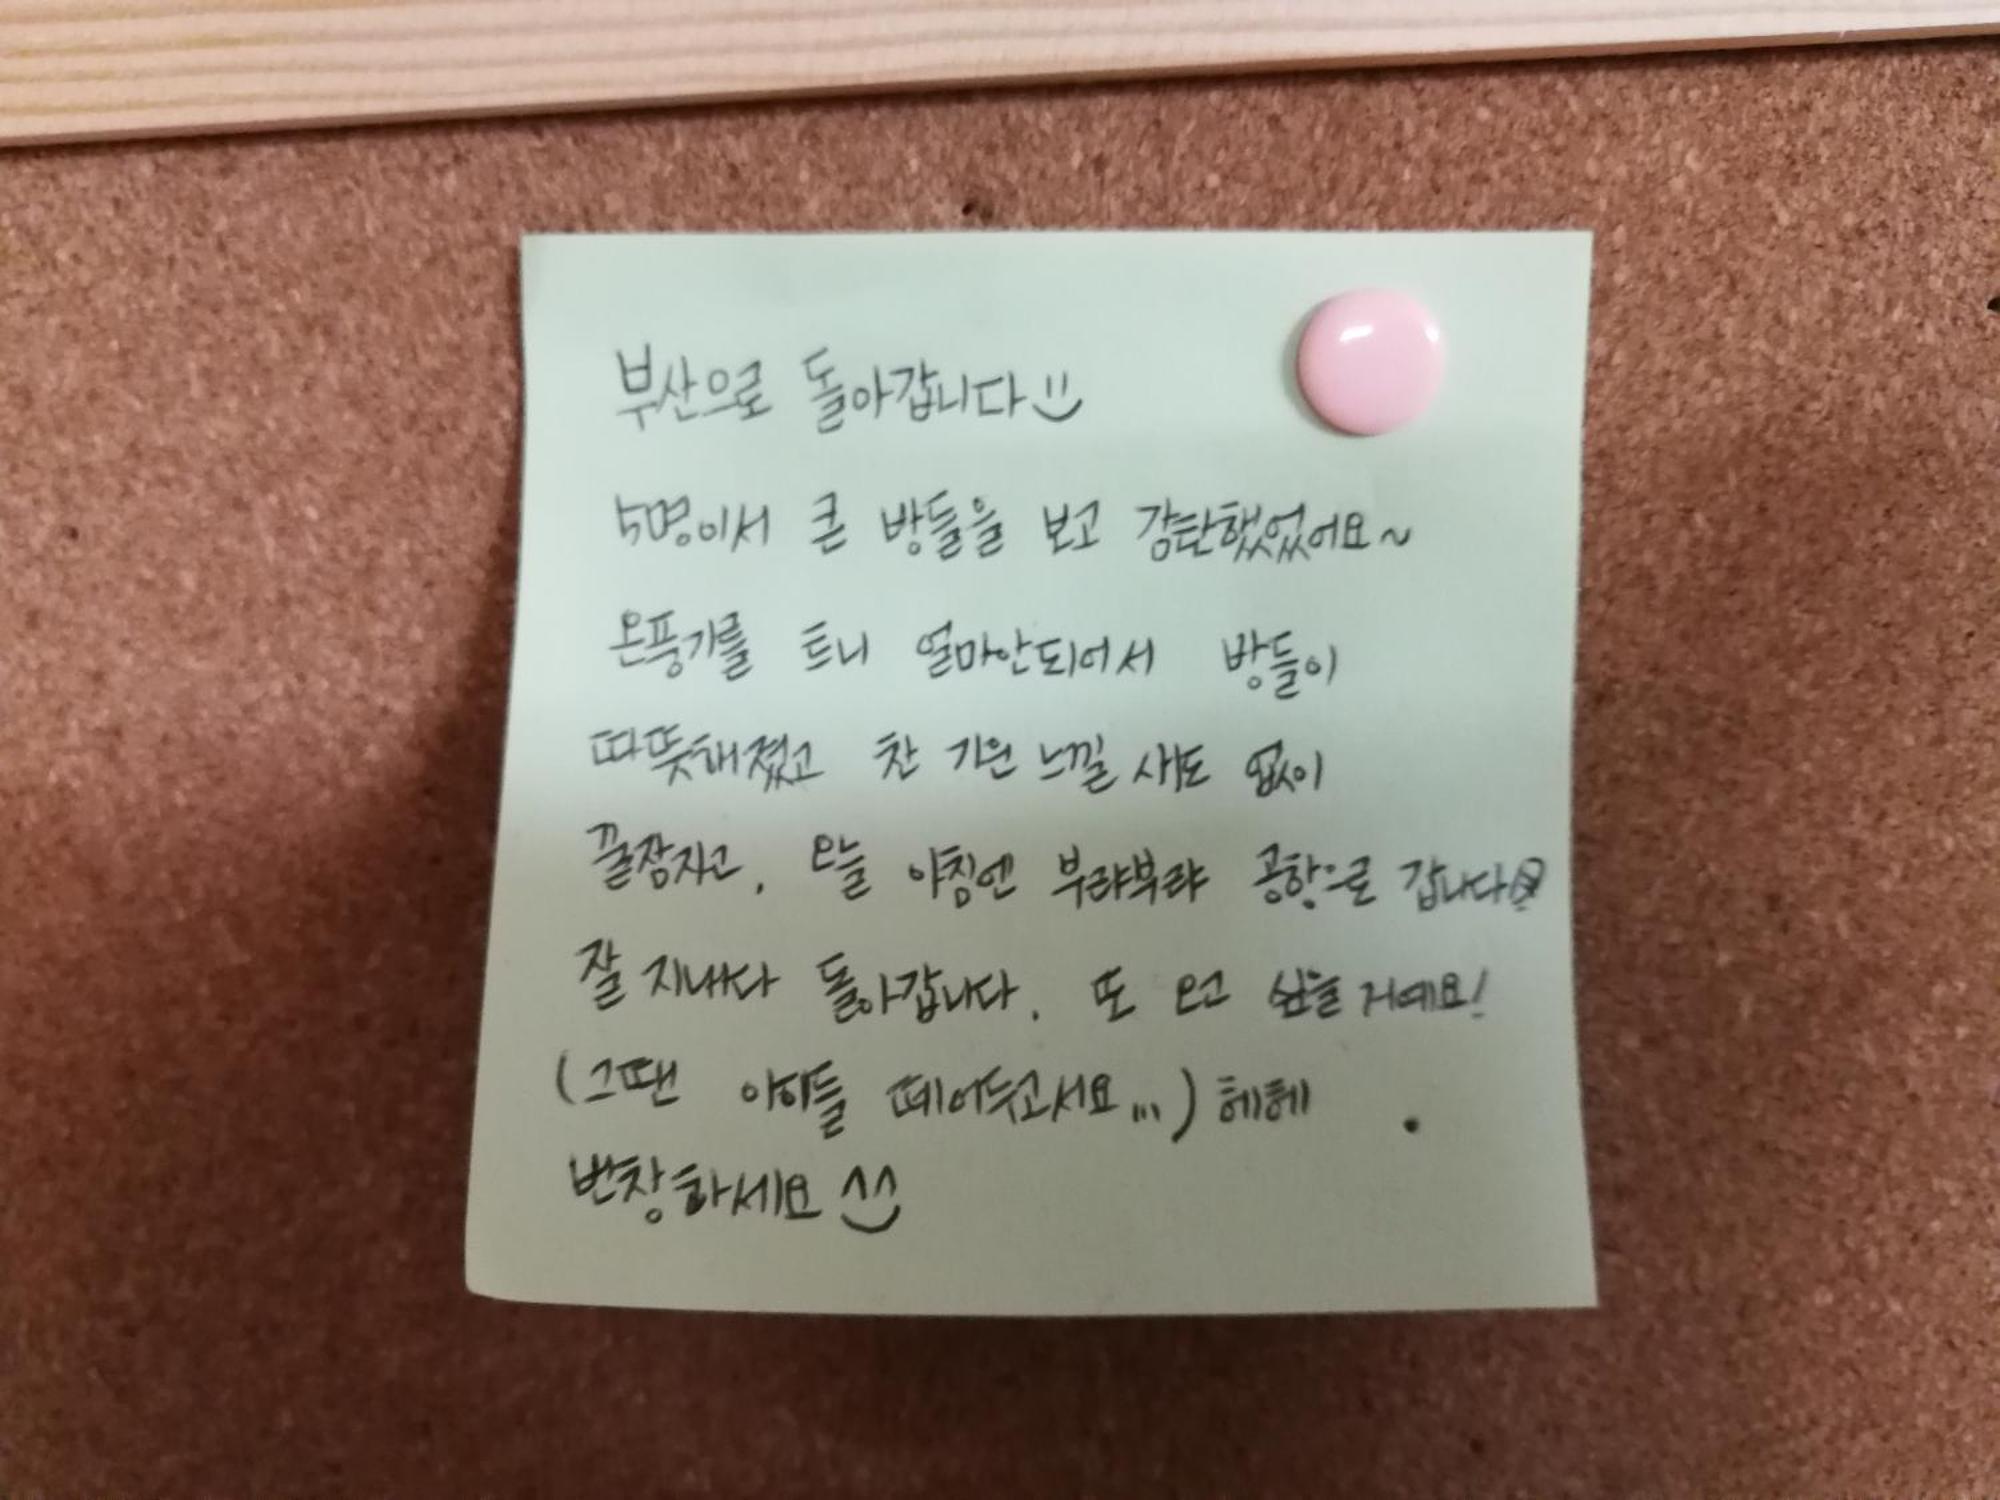 부산으로 돌아갑니다
5명이서 큰 방들을 보고 감탄했었어요~
온풍기를 트니 얼마안되어서 방들이
따뜻해졌고 찬 기운 느낄 새도 없이
꿀잠자고, 오늘 아침엔 부랴부랴 공항으로 갑니다
잘 지내다 돌아갑니다. 또 오고 싶을 거예요!
(그땐 아이들 떼어두고서요...) 헤헤
번창하세요 ^^